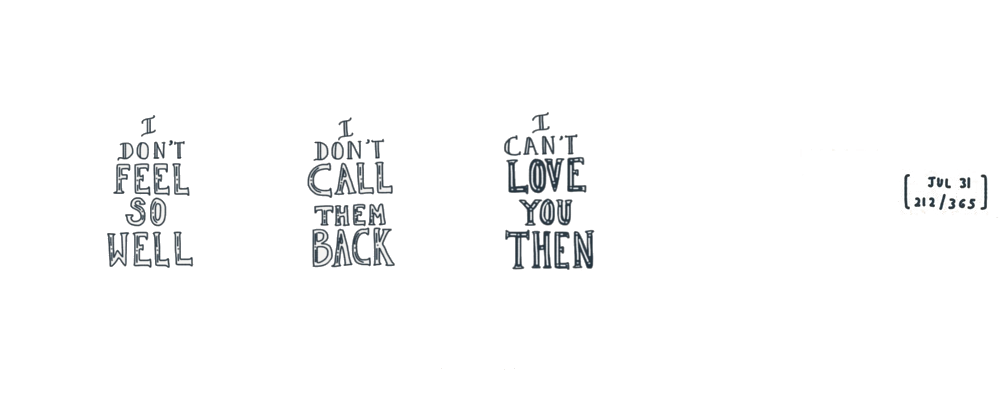 I
DON'T
FEEL
SO
WELL
I
DON'T
CALL
THEM
BACK
I
CAN'T
LOVE
YOU
THEN
[JUL 31
212/365]